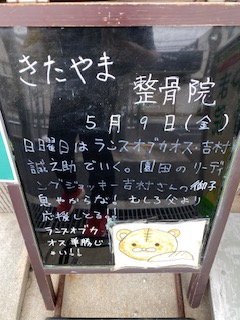 きたやま
整骨院
5月9日(金)
日曜日はランスオブカオス・吉村
誠之助でいく。園田のリーディ
ングジョッキー吉村さんの御子
息やからな!むしろ父より
応援してる!!
ランスオブカ
オス単勝じ
ゃい!!